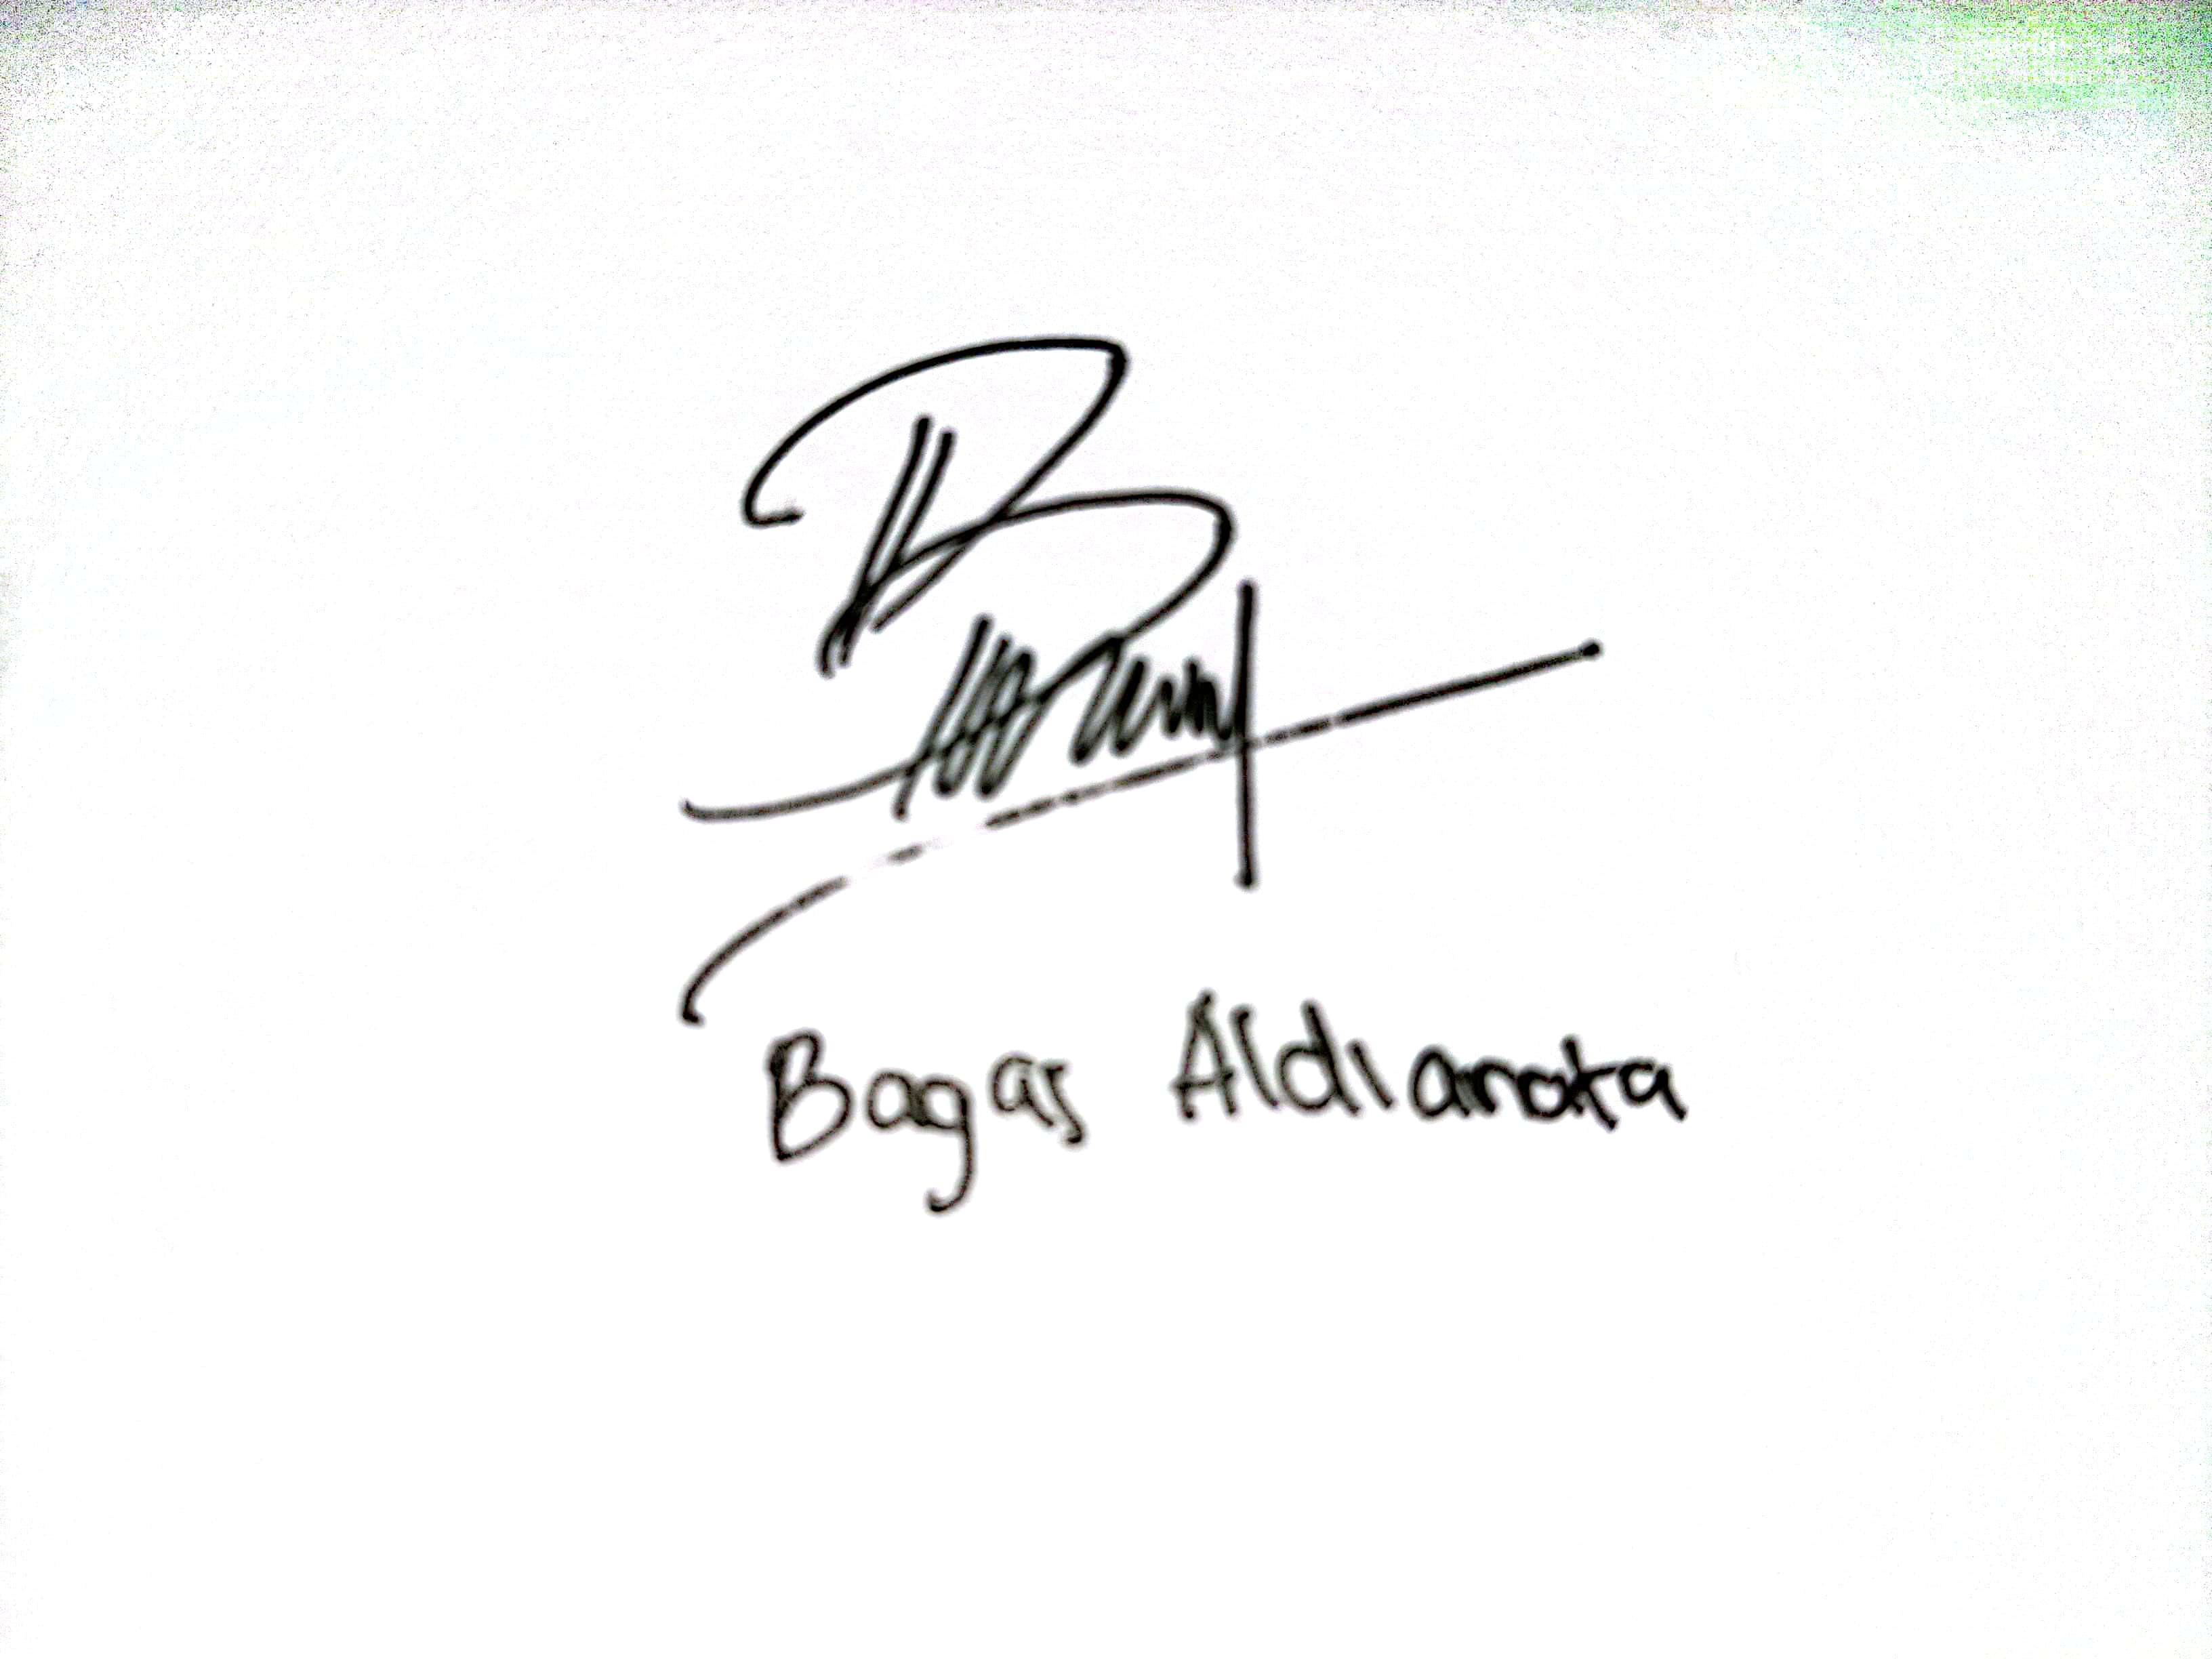 Bagas Aldianata